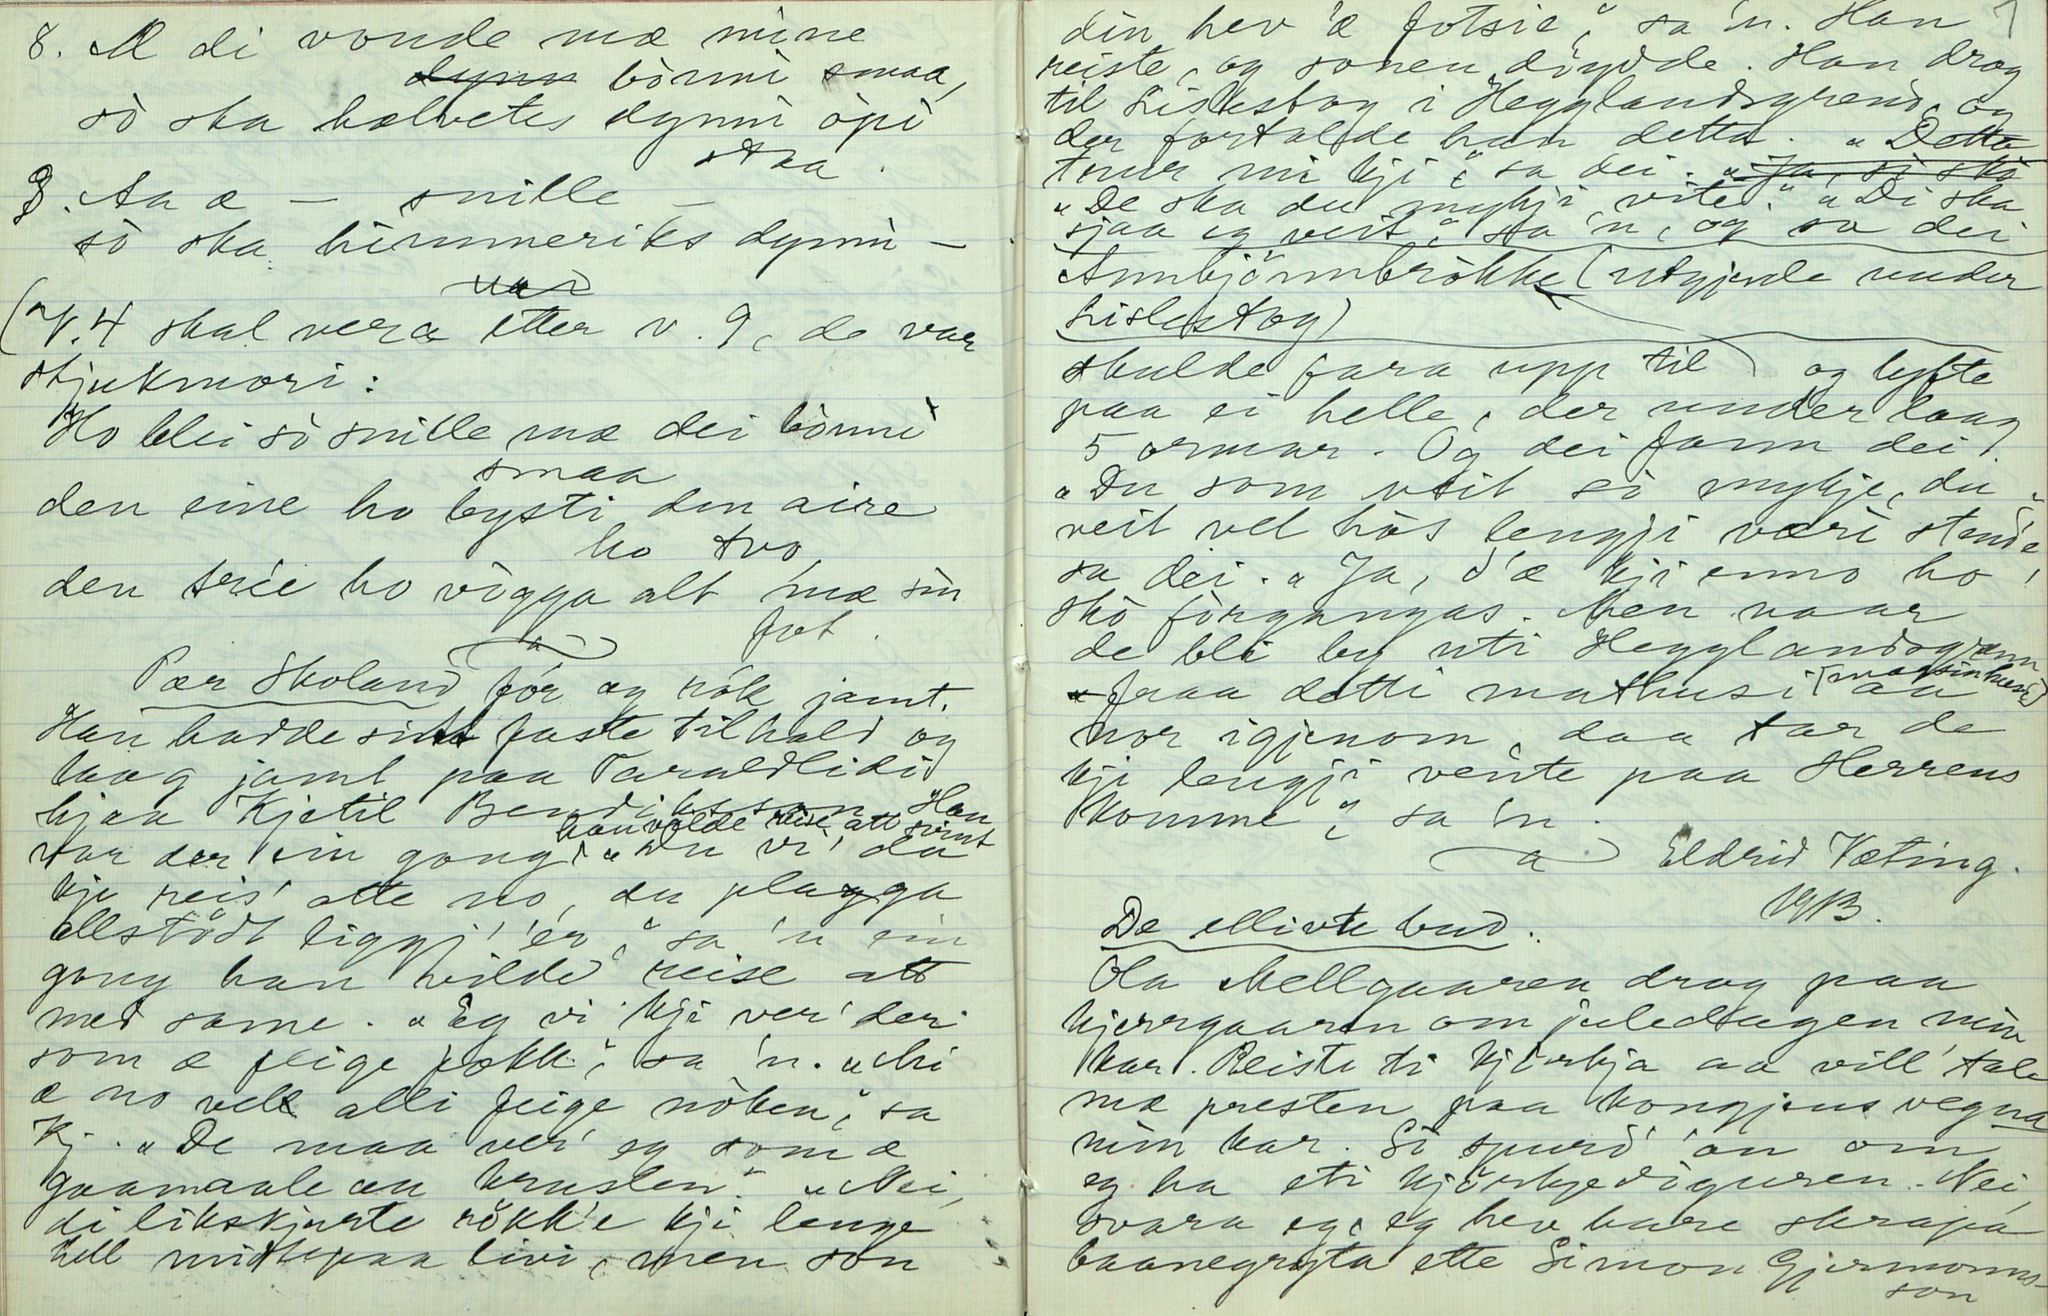 8. Æ di vonde mæ mine
dynn bönni smaa,
sò ska helvetes dynni òpi
staa.
9. Aa æ — snille —
sò ska himmeriks dynni —
(V. 4 skal vera etter v. 9, de var
stjukmori:
Ho blei sò snille mæ dei bönni
smaa
den eine ho bysti den aire
ho tvo,
den trie ho vògga alt mæ sin
fot.
Pær Skoland fór og rók jamt.
Han hadde sitt faste tilhald og
laag jamt paa Taraldlidi
hjaa Kjetil Bendiksson. Han
han vilde reise att sint
var der ein gong. "Du vi' du
kji reis' atte no, du plagga
allstödt liggj' 'er," sa 'n ein
gong han vilde reise att
med same. "Eg vi kji ver' der
som æ feige fokk," sa 'n. "Mi
æ no vel alli feige nòken," sa
Kj. "De maa ver' eg som æ
gaamaale au krusten." "Nei,
di likskjorte rökk'e kji lenge
hell midt paa livi, men son
din hev 'æ fotsie," sa 'n. Han
reiste, og sonen döydde. Han drog
til Lislestog i Hegglandsgrend, og
der fortalde han detta. "Detta
trur mi kji," sa dei. "Ja, si skò
"De ska du mykji vite." "Di ska
sjaa eg veit," sa 'n, og sa dei
Annbjönnbrökke (utgjerde under
Lislestog)
skulde fara upp til og lyfte
paa ei helle, der under laag
5 ormar. Og dei fann dei.
"Du som veit so mykje, du
veit vel hòs lengji væri stend",
sa dei. "Ja, d'æ kji enno ho
skò fòrgangas. Men naar
de bli by uti Hegglandsgrenn
fraa detti mathusi (maskinhusi) aa
nor igjenom, daa tar de
kji lengji vente paa Herrens
komme," sa 'n.
Eldrid Væting.
De ellivte bud.
Ola Mellgaaren drog paa
kjerrgaarn om juledagen min
kar. Reiste ti kjörkja aa vill' tale
mæ presten paa kongjens vegna
min kar. Si spurd' 'an om
eg ha eti kjörkjedòguren. Nei,
svara eg, eg hev bare skrapa
baanegryta ette Simon Gjermonns-
son